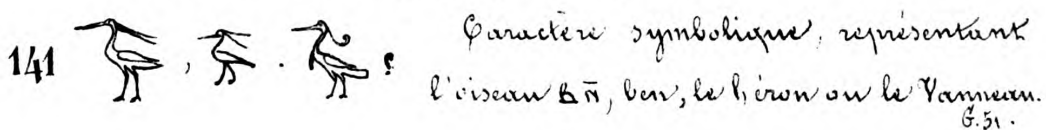 141 Caractère symbolique, représentant
l'oiseau ⲃⲛ̄, ben, le héron ou le Vanneau.
G. 51.